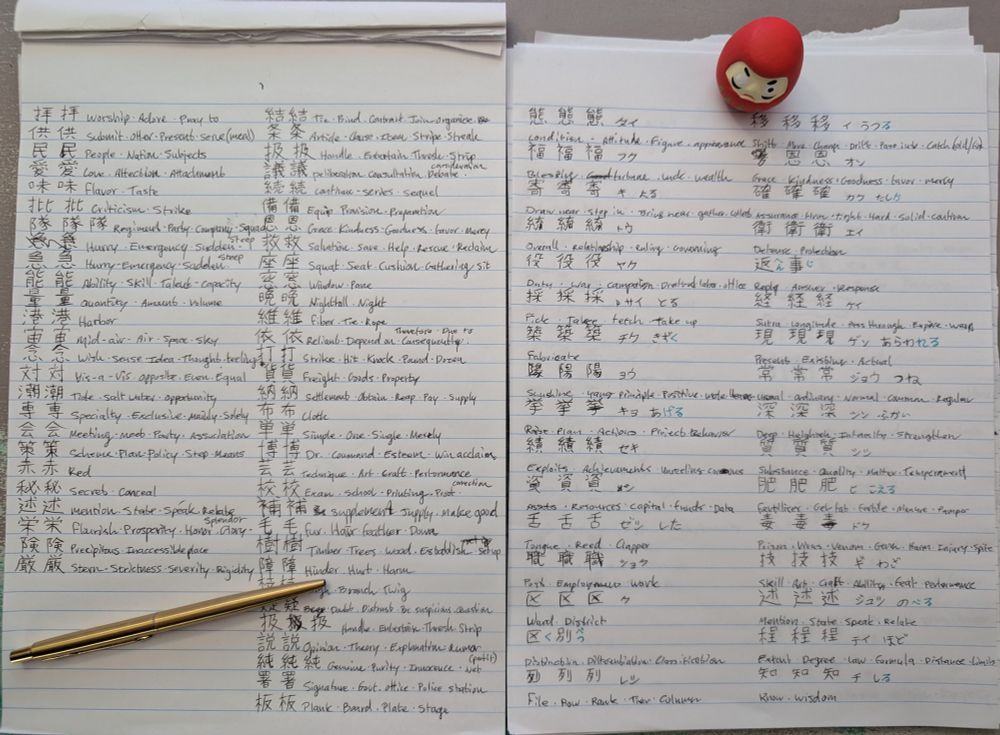 拝 拝 Worship・Adore・Pray to
供 供 Submit・Offer・Present・Serve (meal)
民 民 People・Nation・Subjects
愛 愛 Love・Affection・Attachment
味 味 Flavor・Taste
批 批 Criticism・Strike
隊 隊 隊 Regiment・Party・Company・Squad
Hurry・Emergency・Sudden Steep
急 急 Hurry・Emergency・Sudden steep
能 能 Ability・Skill・Talent・Capacity
量 量 Quantity・Amount・Volume
港 港 Harbor
宙 宙 Mid-air・Air・Space・Sky
念 念 Wish・Sense・Idea・Thought・feeling
対 対 Vis-a-Vis・opposite・Even・Equal
潮 潮 Tide・salt water・opportunity
専 専 Specialty・Exclusive・Mainly・Solely
会 会 Meeting・Meet・Party・Association
策 策 Scheme・Plan・Policy・Step・Means
赤 赤 Red
秘 秘 Secret・Conceal
述 述 Mention・State・Speak・Relate
栄 栄 Flourish・Prosperity・Honor・Glory・Splendor
険 険 Precipitous・Inaccessible place
厳 厳 Stern・Strictness・Severity・Rigidity
結 結 Tie・Bind・Contract・Join・Organize
条 条 Article・Clause・Item・Stripe・Streak
扱 扱 Handle・Entertain・Thresh・Strip
議 議 Deliberation・Consultation・Debate・consideration
続 続 Continue・series・Sequel
備 備 Equip・Provision・Preparation
恩 恩 Grace・Kindness・Goodness・Favor・Mercy
救 救 Salvation・Save・Help・Rescue・Reclaim
座 座 Squat・Seat・Cushion・Gathering・Sit
窓 窓 Window・Pane
晩 晩 Nightfall・Night
維 維 Fiber・Tie・Rope
依 依 Reliant・Depend on・Consequently・Therefore・Due to
打 打 Strike・Hit・Knock・Pound・Dozen
貨 貨 Freight・Goods・Property
納 納 Settlement・Obtain・Reap・Pay・Supply
布 布 Cloth
単 単 Simple・One・Single・Merely
博 博 Dr.・Command・Esteem・Win acclaim
芸 芸 Technique・Art・Craft・Performance
校 校 Exam・School・Printing・Proof・correction
補 補 Supplement・Supply・Make good
毛 毛 Fur・Hair・Feather・Down
樹 樹 Timber・Trees・Wood・Establish・Set up
障 障 Hinder・Hurt・Harm
Branch・Twig
疑 Doubt・Distrust・Be suspicious・Question
扱 扱 Handle・Entertain・Thresh・Strip
説 説 Opinion・Theory・Explanation・Rumor
純 純 純 Genuine・Purity・Innocence・Net (profit)
署 署 Signature・Govt. office・Police station
板 板 Plank・Board・Plate・Stage
態 態 態 タイ
Condition・Attitude・Figure・appearance
福 福 福 フク
Blessing・fortune・luck・wealth
寄 寄 寄 キ よる
Draw near・Step in・Bring near・gather・Collect
統 統 統 トウ
Overall・Relationship・Ruling・Governing
役 役 役 ヤク
Duty・War・Campaign・Drafted labor・office
採 採 採 サイ とる
Pick・Take・fetch・take up
築 築 築 チク きずく
Fabricate
陽 陽 陽 ヨウ
Sunshine・Principle・Positive
挙 挙 挙 キョ あげる
Raise・Plan・Actions・Project・Behavior
績 績 績 セキ
Exploits・Achievements
資 資 資 シ
Assets・Resources・Capital・funds・Data
舌 舌 舌 ゼツ した
Tongue・Reed・Clapper
職 職 職 ショク
Post・Employment・Work
区 区 区 ク
Ward・District
区く 別べつ
Distinction・Differentiation・Classification
列 列 列 レツ
File・Row・Rank・Tier・Column
移 移 移 イ うつる
Shift・Move・Change・Drift・Catch (cold/fire)
恩 恩 オン
Grace・Kindness・Goodness・favor・mercy
確 確 確 カク たしか
Assurance・Firm・tight・Hard・Solid・confirm
衛 衛 衛 エイ
Defense・Protection
返へん 事じ
Reply・Answer・Response
経 経 経 ケイ
Sutra・Longitude・Pass through・Expire・warp
現 現 現 ゲン あらわれる
Present・Existing・Actual
常 常 常 ジョウ つね
Usual・ordinary・Normal・Common・Regular
深 深 深 シン ふかい
Deep・Heighten・Intensify・Strengthen
質 質 質 シツ
Substance・Quality・Matter・Temperament
肥 肥 肥 ヒ こえる
Fertilizer・Get fat・Fertile・Manure・Pamper
毒 毒 毒 ドク
Poison・Virus・Venom・Germ・Harm・Injury・Spite
技 技 技 ギ わざ
Skill・Art・Craft・Ability・Feat・Performance
述 述 述 ジュツ のべる
Mention・State・Speak・Relate
程 程 程 テイ ほど
Extent・Degree・Law・Formula・Distance・Limits
知 知 知 チ しる
Know・Wisdom